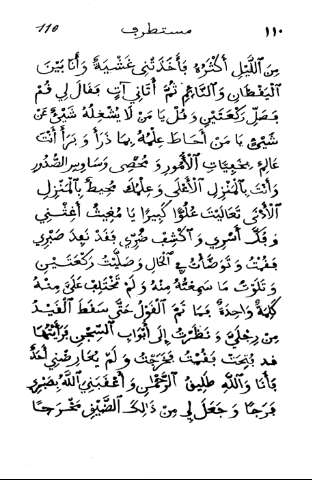 ١١٠ مستطرف 110
مِنَ اللَّيْلِ أَكْثَرُهُ فَأَخَذَتْنِي غَشْيَةٌ وَأَنَا بَيْنَ
الْيَقْظَانِ وَالنَّائِمِ ثُمَّ أَتَانِي آتٍ فَقَالَ لِي قُمْ
فَصَلِّ رَكْعَتَيْنِ وَقُلْ يَا مَنْ لَا يَشْغَلُهُ شَيْءٌ عَنْ
شَيْءٍ يَا مَنْ أَحَاطَ عِلْمُهُ بِمَا ذَرَأَ وَبَرَأَ أَنْتَ
عَالِمٌ بِخَفِيَّاتِ الْأُمُورِ وَمُحْصِي وَسَاوِيرِ الصُّدُورِ
وَأَنْتَ بِالْمَنْزِلِ الْأَعْلَى وَعِلْمُكَ مُحِيطٌ بِالْمَنْزِلِ
الْأَدْنَى تَعَالَيْتَ عُلُوًّا كَبِيرًا يَا مُغِيثُ أَغِثْنِي
وَفُكَّ أَسْرِي وَاكْشِفْ ضُرِّي فَقَدْ نَفِدَ صَبْرِي
فَقُمْتُ وَتَوَضَّأْتُ فِي الْحَالِ وَصَلَّيْتُ رَكْعَتَيْنِ
وَتَلَوْتُ مَا سَمِعْتُهُ مِنْهُ وَلَمْ تَخْتَلِفْ عَلَيَّ مِنْهُ
كَلِمَةٌ وَاحِدَةٌ فَمَا تَمَّ الْقَوْلُ حَتَّى سَقَطَ الْقَيْدُ
مِنْ رِجْلِي وَنَظَرْتُ إِلَى أَبْوَابِ السِّجْنِ فَرَأَيْتُهَا
قَدْ فُتِحَتْ فَقُمْتُ فَخَرَجْتُ وَلَمْ يُعَارِضْنِي أَحَدٌ
فَأَنَا وَاللَّهِ طَلِيقُ الرَّحْمَانِ وَأَعْقَبَنِي اللَّهُ بِصَبْرِي
فَرَجًا وَجَعَلَ لِي مِنْ ذَالِكَ الضَّيْقِ مَخْرَجًا